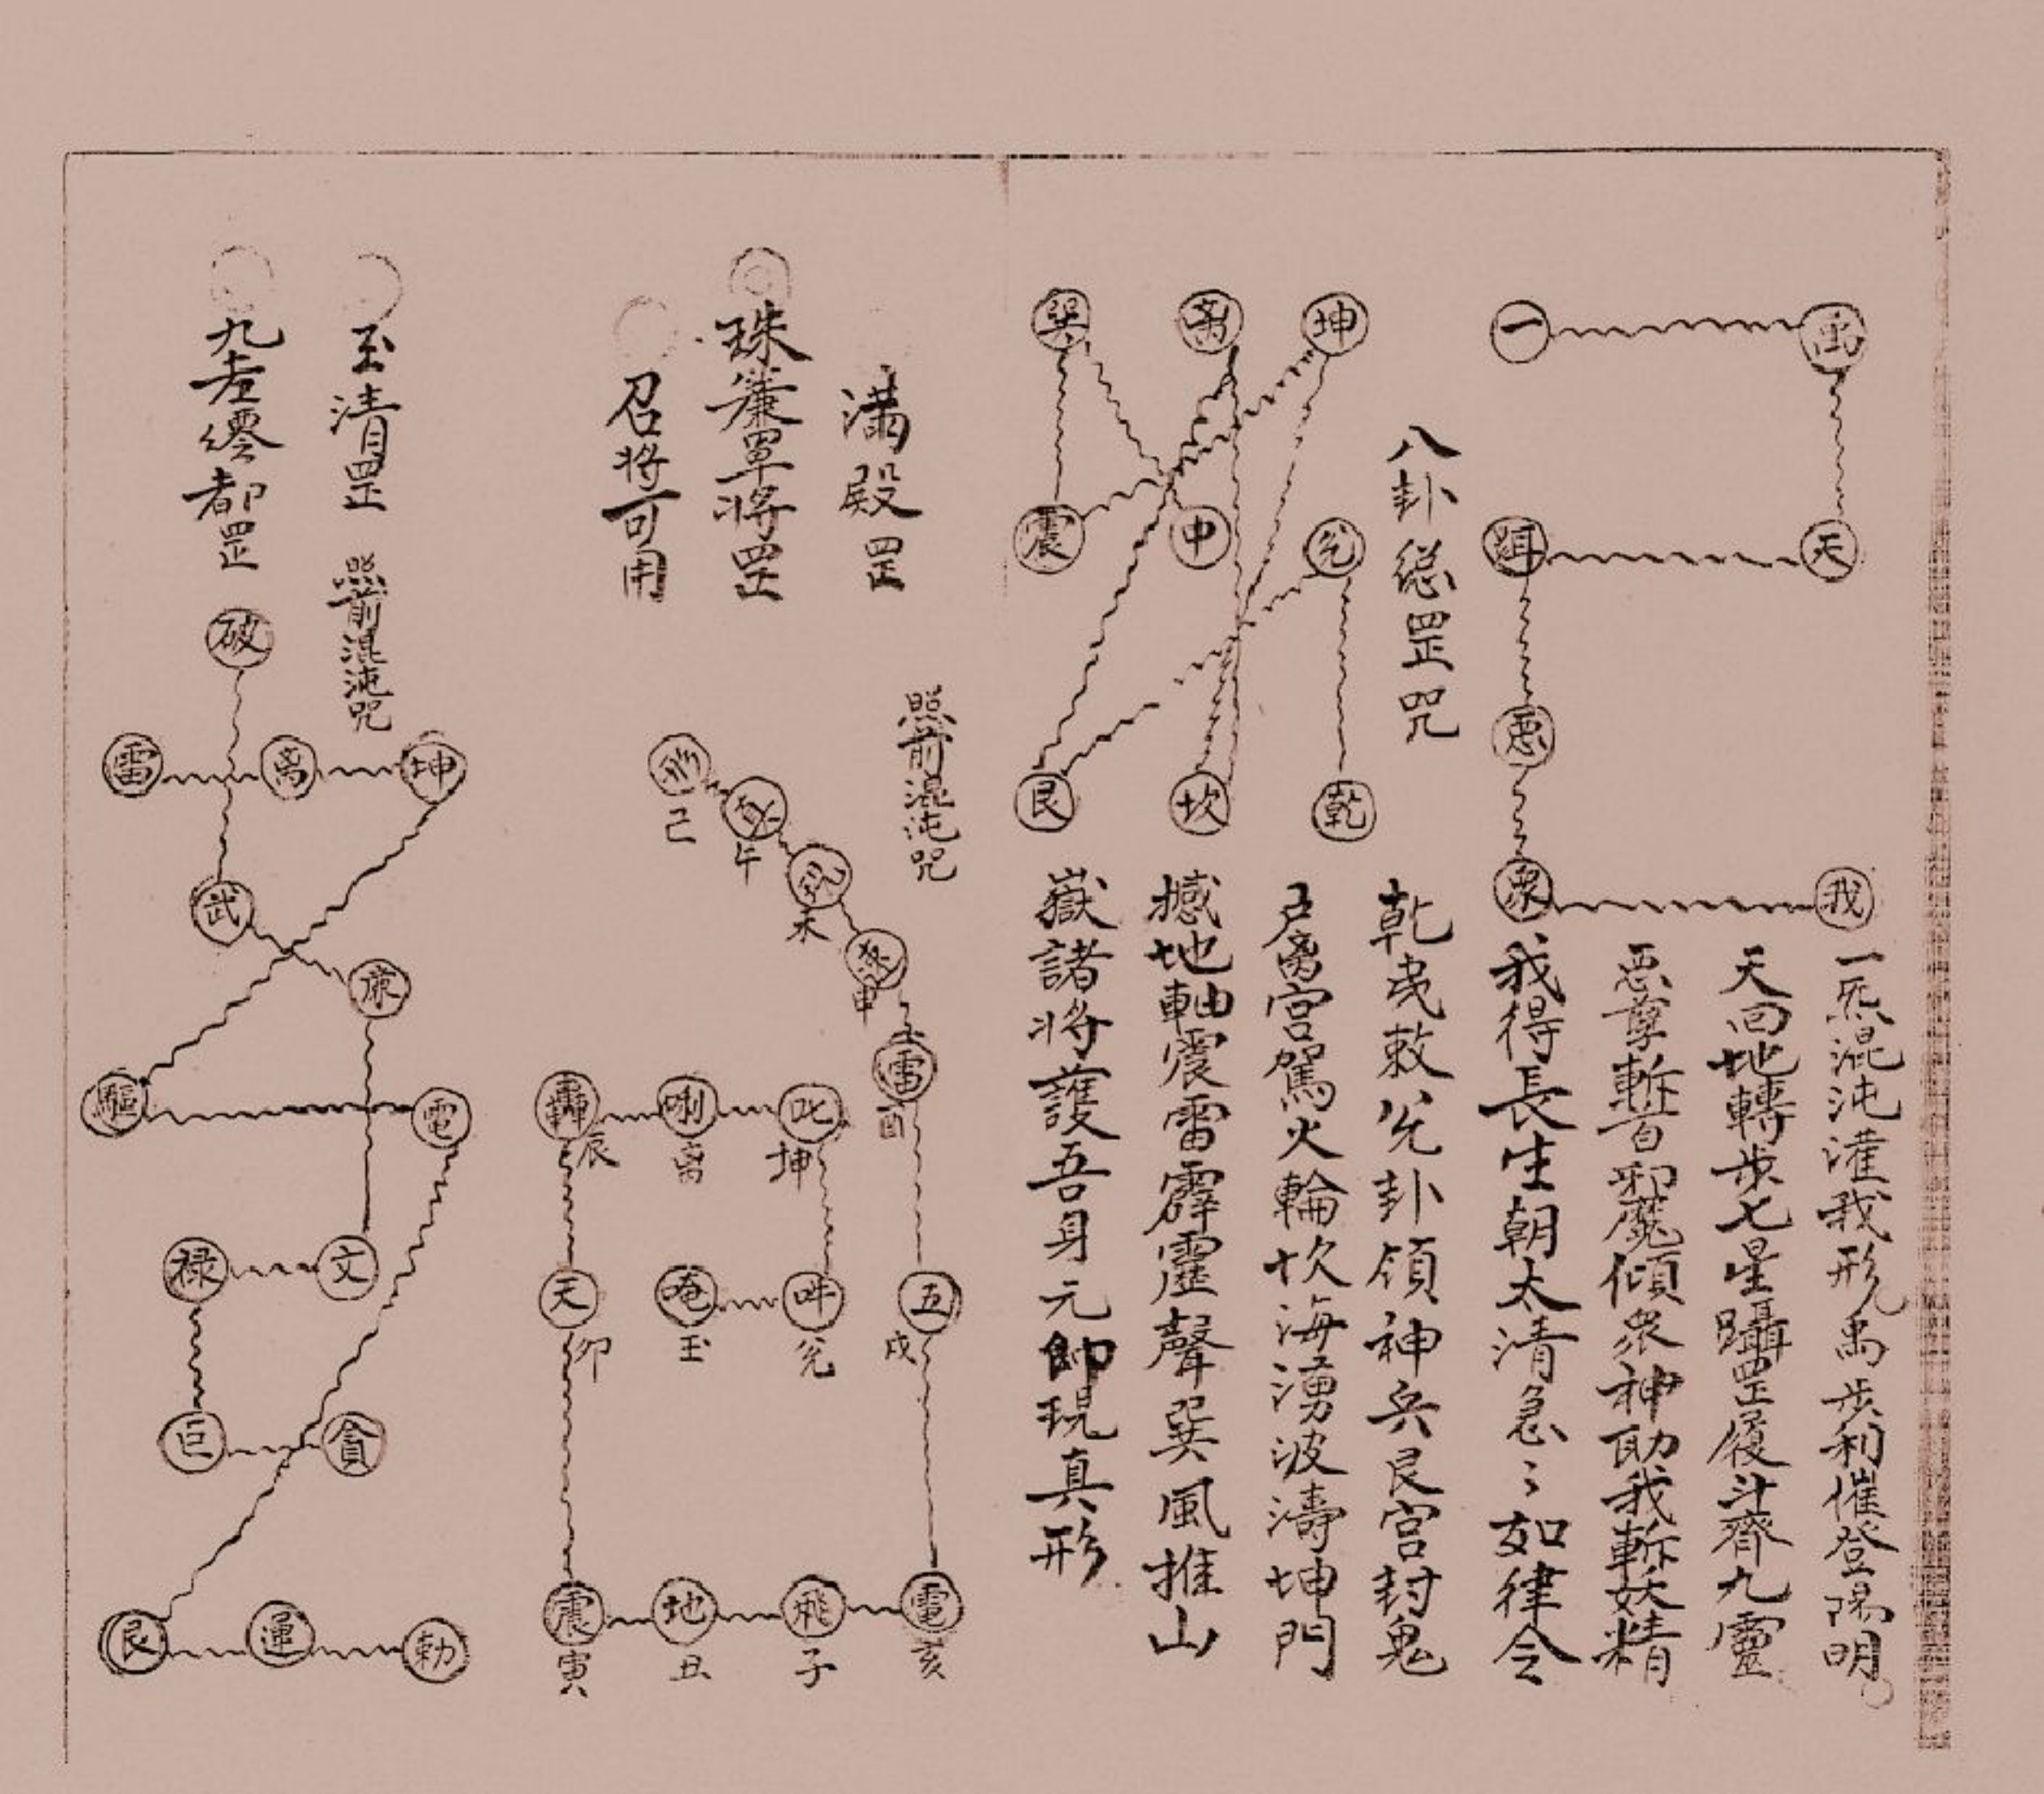 禹
一
天
悪
衆
我
一炁混沌灌我形禹步利催登陽明
天回地轉步七星躡罡履斗齊九靈
悪孽斬首邪魔傾衆神助我斬妖精
我得長生朝太清急〻如律令
八卦総罡咒
坤
离
巽
兊
中
震
乾
坎
艮
乾曵敕兊卦領神兵艮宮封鬼
戸离宮駕火輪坎海湧波濤坤門
撼地軸震雷霹靂聲巽風推山
嶽諸将護吾身元帥現真形
照前混沌咒
滿殿罡
珠簾罩将罡
召将可用
己
午
未
申
雷
酉
叱
坤
唎
离
轟
辰
五
戌
吽
兊
奄
玉
天
卯
電
亥
飛
子
地
丑
震
寅
玉清罡 照前混沌咒
九老零都罡
破
坤
离
雷
武
康
電
驅
文
禄
貪
巨
勅
運
艮